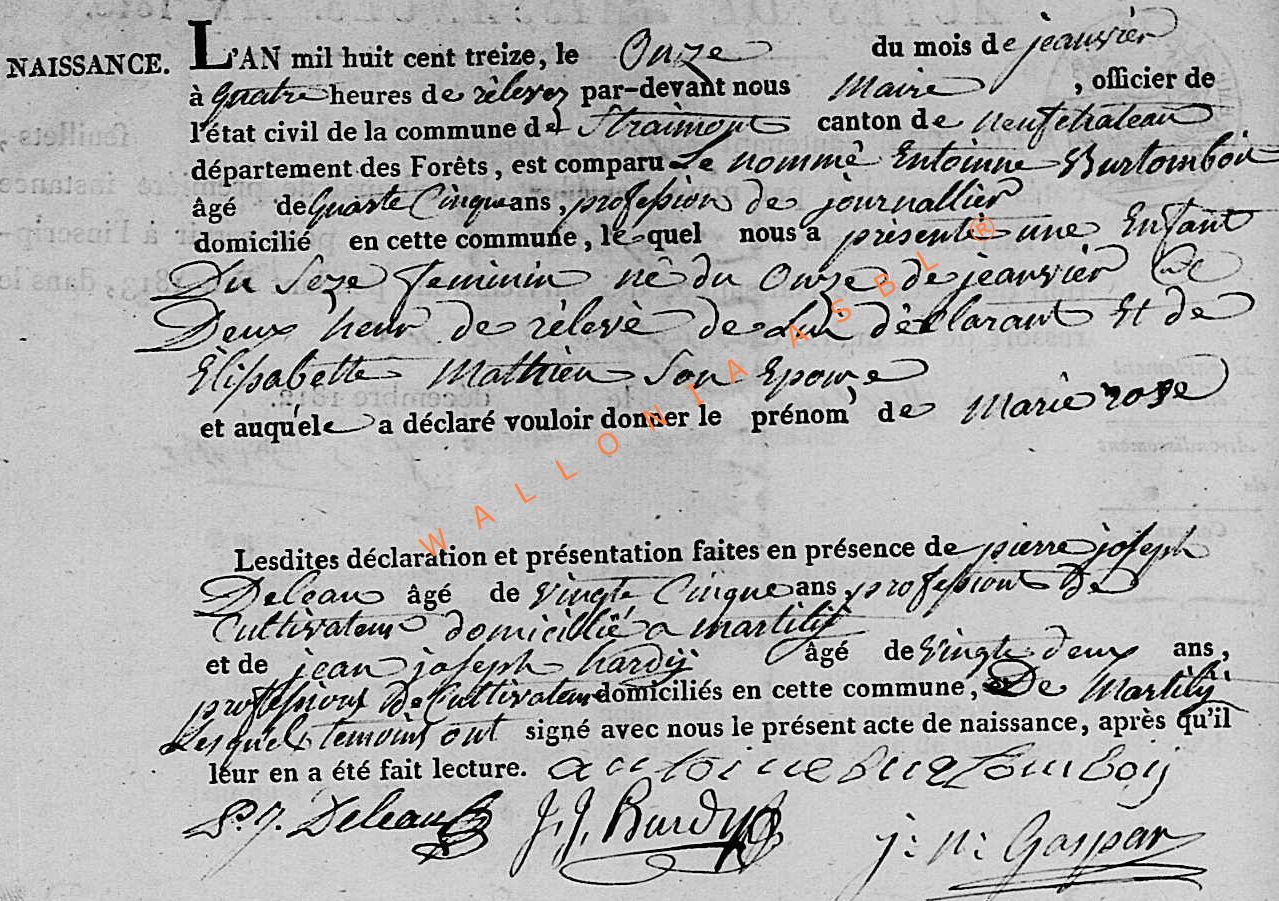 NAISSANCE. L'AN mil huit cent treize, le Onze du mois de jeanvier
à quatre heures de rèlevez par-devant nous Maire, officier de
l'état civil de la commune de Straimont canton de neufchateau
département des Forêts, est comparu Le nommê Entoinne Burtomboy
âgé de Quarte Cinque ans, profession de journallier
domicilié en cette commune, lequel nous a présentè une Enfant
Du Seze feminin nê du Onze de jeanvier
Deux heur de rèlevè de Lui dèclarant Et de
Èlisabette Mathieu Son Epouze
et auquéle a déclaré vouloir donner le prénom de Marie rose
WALLONIA ASBL ®
Lesdites déclaration et présentation faites en présence de pierre joseph
Deleau âgé de vingte Cinque ans, profession De
Cultivateur domicillié a martilly
et de jean joseph hardÿ âgé de vingte deux ans,
professions de Cultivateur domiciliés en cette commune, De Martilÿ
Lesquels temoins ont signé avec nous le présent acte de naissance, après qu'il
leur en a été fait lecture. antoine burtomboy
P. J. Deleau J. J. hardy j: n: Gaspar